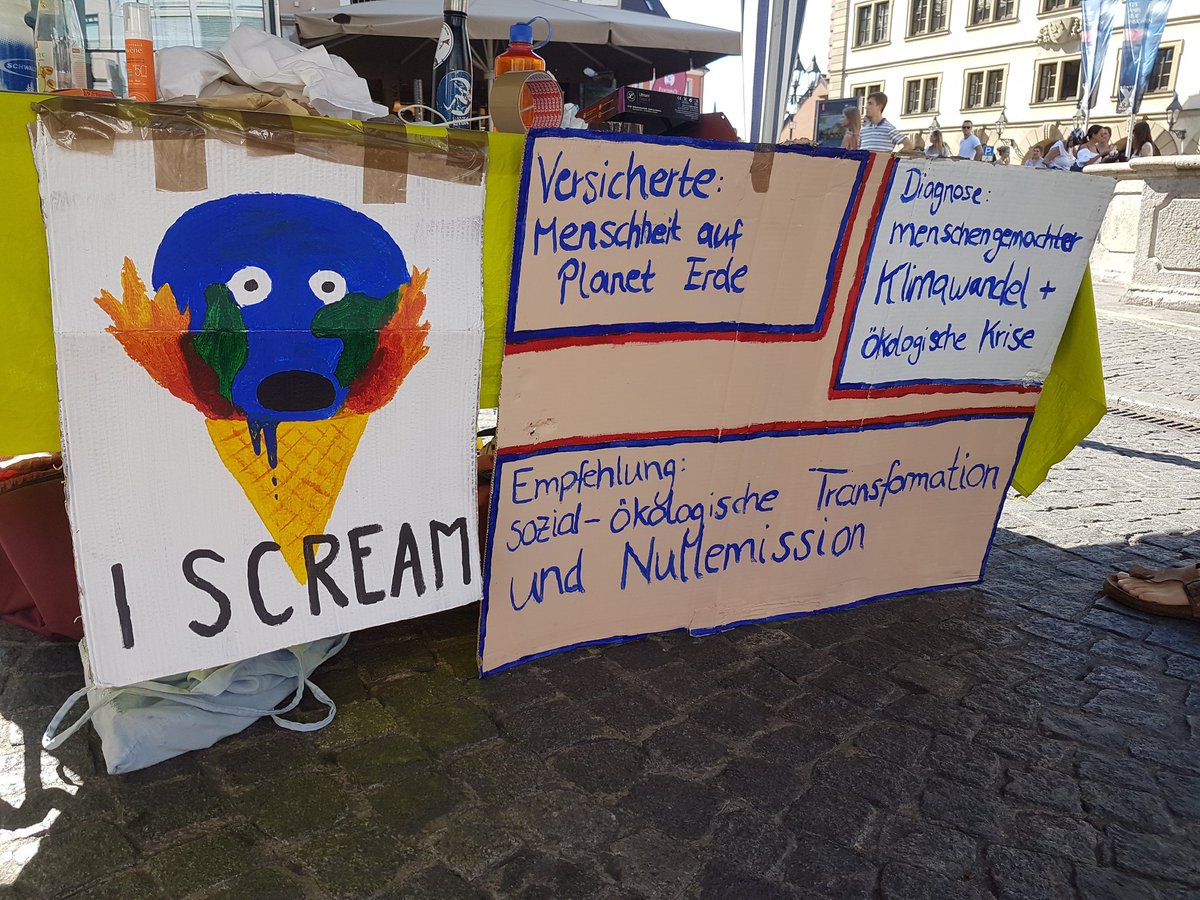 I SCREAM
Versicherte:
Menschheit auf
Planet Erde
Diagnose:
menschengemachter
Klimawandel +
ökologische Krise
Empfehlung:
sozial-ökologische Transformation
und Nullemission